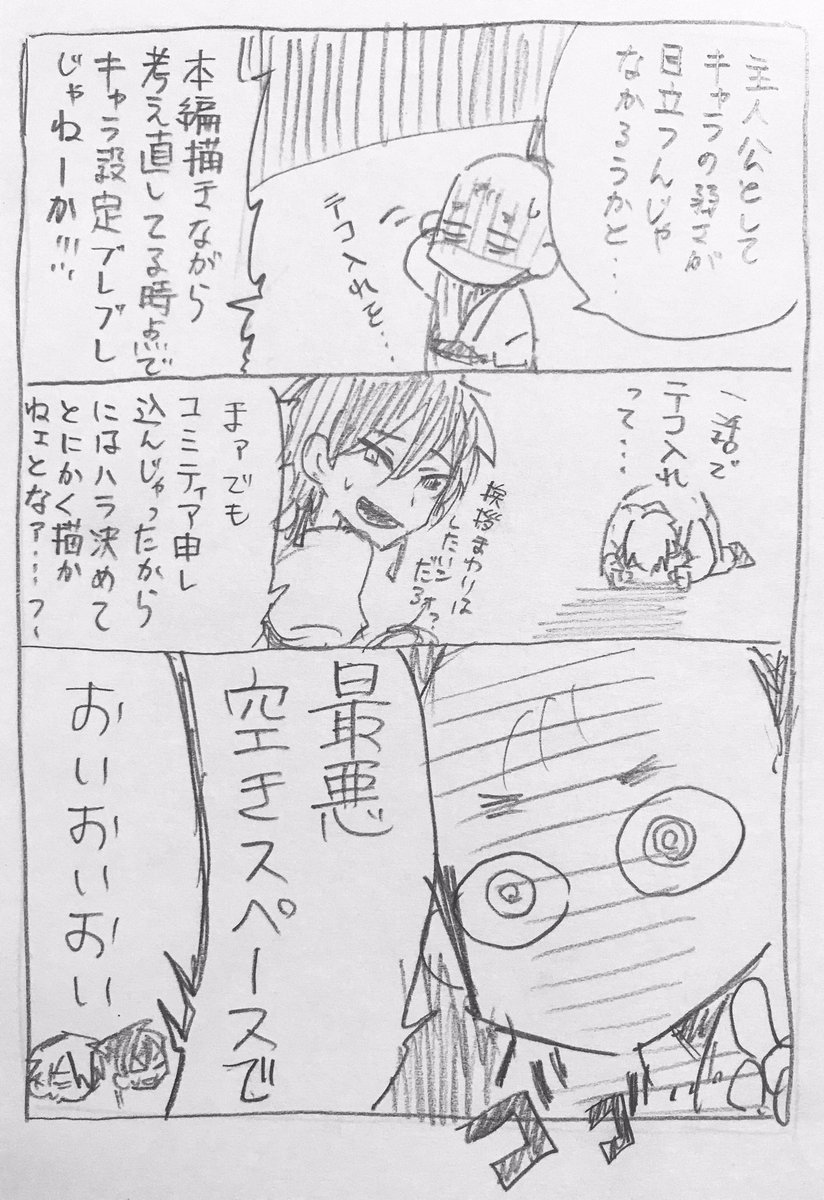 主人公として
キャラの弱さが
目立つんじゃ
なかろうかと‥
テコ入れを…
本編描きながら
考え直してる時点で
キャラ設定ブレブレ
じゃねーか!!!
一話で
テコ入れ
って…
挨拶まわりは
したいン
だろォ?
まァでも
コミティア申し
込んじゃったから
にはハラ決めて
とにかく描か
ねェとなァ…
最悪
空きスペースで
おいおいおい